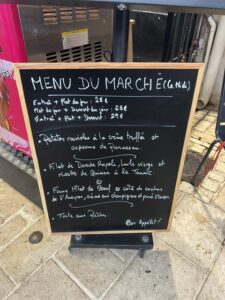 MENU DU MARCHÉ (Le Midi)
Entrée + Plat du jour : 26€
Plat du jour + Dessert du jour : 26€
Entrée + Plat + Dessert : 29€
Petites ravioles à la crème truffée et
copeaux de Parmesan.
Filet de Daurade Royale, huile vierge et
risotto de Quinoa à la Tomate
ou
Faux Filet de Bœuf et
crème aux champignons et
Tarte aux
Bon Appétit !